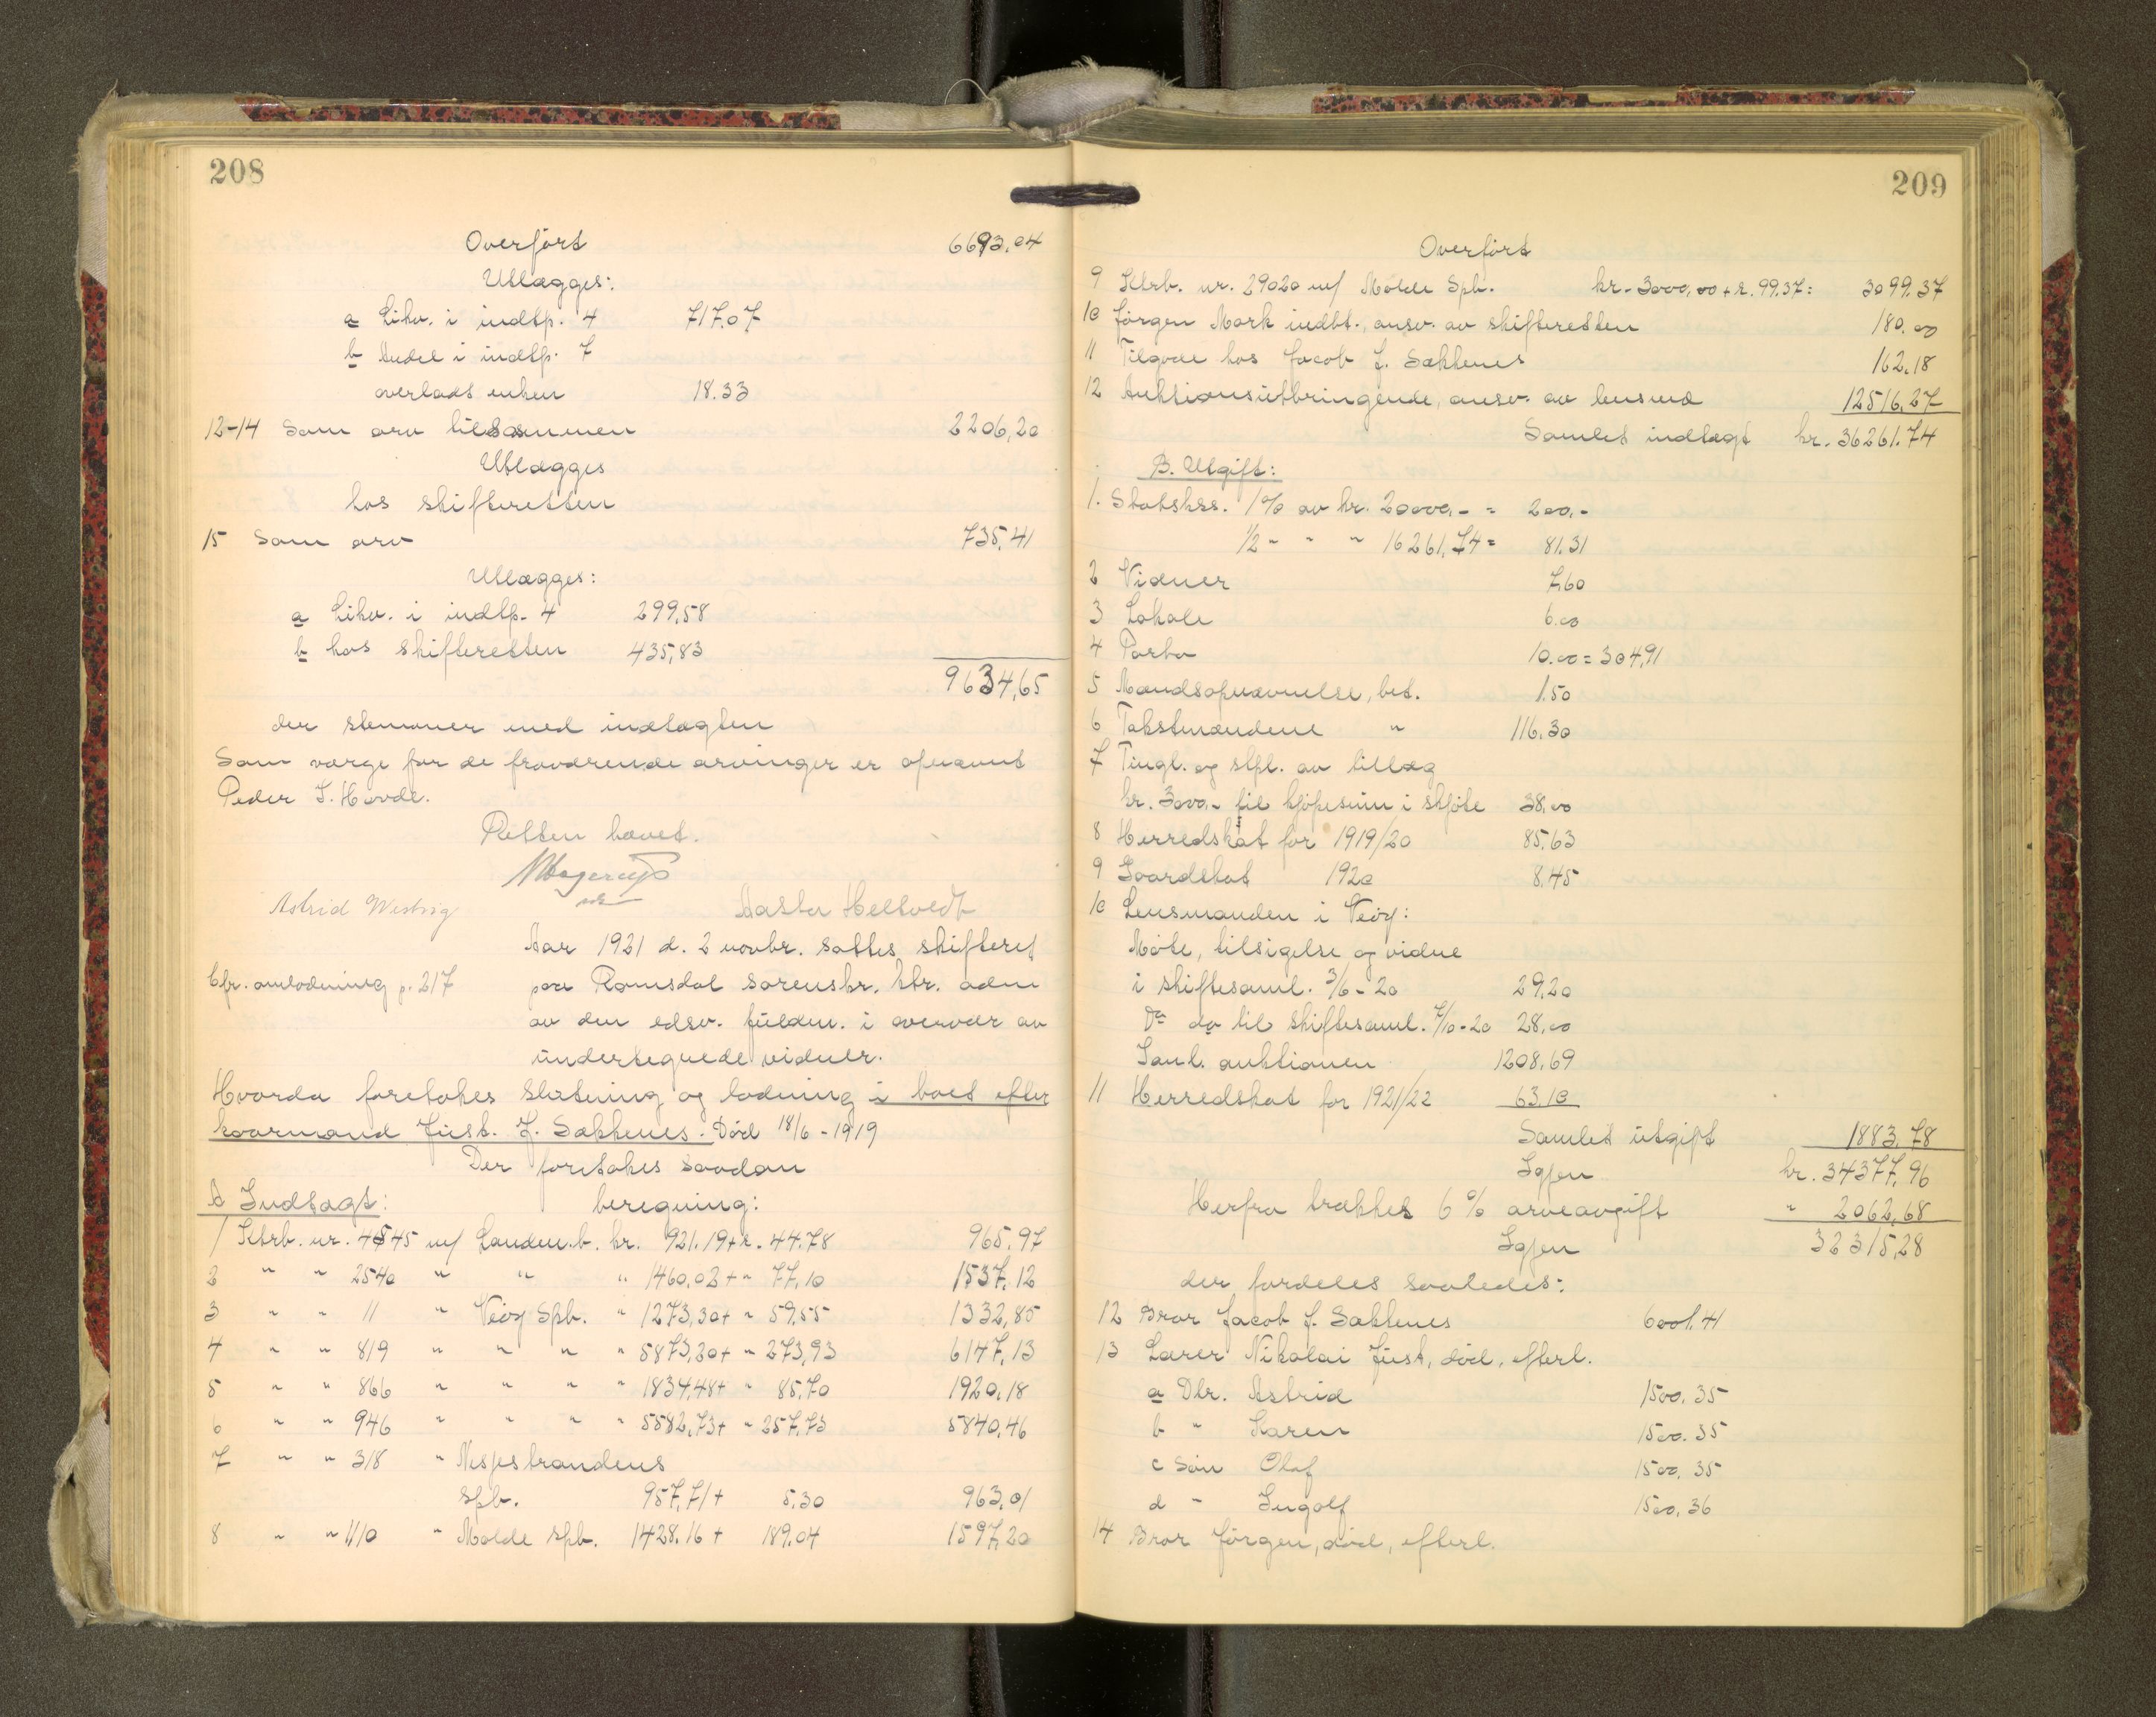 208
Overført 6693.04
Utlægges:
a Likv. i indtp. 4 717.07
b Andel i indtp. 7
overlads enken 18.33
12-14 Som arv tilsammen 2206,20
Utlægges
hos skifteretten
15 Som arv 735,41
Utlægges:
a Likv. i indtp. 4 299,58
b hos skifteretten 435,83
9634,65
der stemmer med indtægten
Som værge for de fraværende arvinger er opnævnt
Peder J. Hovde.
Retten hævet.
Astrid Westvig Aasta Heltvedt
Aar 1921 d. 2 novbr. sattes skifteret
Cfr. omlodning p. 217 paa Romsdal sorenskr. ktr. adm
av den edsv. fuldm. i overvær av
undertegnede vidner.
Hvorda foretokes slutning og lodning i boet efter
kaarmand Just. J. Sækkenes. Død 18/6-1919
Der foretokes saadan
A Indtægt: beregning:
1 Ktrb. nr. 4845 m/ Landm.b. kr. 921.19+r. 44.78 965.97
2 " " 2540 " " " 1460.02+ " 77.10 1537.12
3 " " 11 " Veøy Spb. " 1273,30+ " 59,55 1332,85
4 " " 819 " " " " 5873,20+ " 273,93 6147,13
5 " " 866 " " " " 1834,48+ " 85,70 1920,18
6 " " 946 " " " " 5582,73+ " 257,73 5840,46
7 " " 318 " Nesjestrandens
Spb. 957,71+ 5.30 963.01
8 " " 1110 " Molde Spb. 1428.16+ 189.04 1597,20
209
Overført
9 Ktrb. nr. 29020 m/ Molde Spb. kr. 3000,00+r. 99.37: 3099.37
10 Jørgen Mork indbt., ansv. av skifteretten 180.00
11 Tilgode hos Jacob J. Sækkenes 162.18
12 Auktionsutbringende, ansv. av lensmd 12516,27
Samlet indtægt kr. 36261.74
B. Utgift:
1. Statskss. 1% av kr. 20000,- = 200,-
1/2 " " " 16261,74 = 81.31
2 Vidner 7,60
3 Lokale 6.00
4 Porto 10.00 = 304,91
5 Mandsopnævnelse, bet. 1.50
6 Takstmændene " 116.30
7 Tingl. og stpl. av tillæg
kr. 3000,- til kjøpesum i skjøte 38.00
8 Herredskat for 1919/20 85.63
9 Svordskat 1920 8.45
10 Lensmanden i Veøy:
Møte, tilsigelse og vidne
i skiftesaml. 3/6-20 29.20
Do do til skiftesaml. 7/10-20 28,00
Ianl. auktionen 1208.69
11 Herredskat for 1921/22 63.10
Samlet utgift 1883.78
Igjen kr. 34377,96
Herfra trækkes 6% arveavgift " 2062,68
Igjen 32315,28
der fordeles saaledes:
12 Bror Jacob J. Sækkenes 6001.41
13 Lærer Nikolai Just, død, efterl.
a Dtr. Astrid 1500.35
b " Karen 1500.35
c Søn Olaf 1500.35
d " Ingolf 1500,36
14 Bror Jørgen, død, efterl.